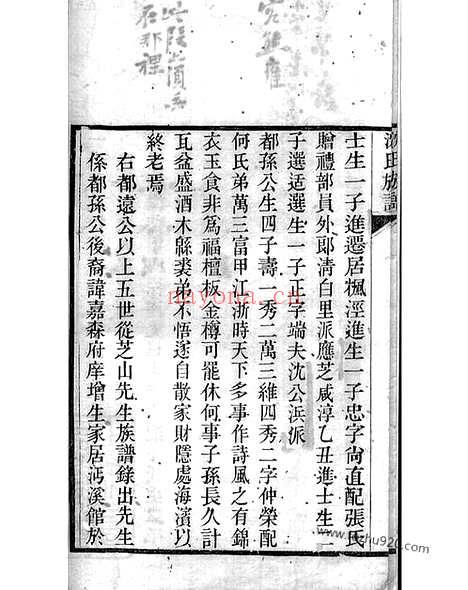 沈氏族譜
士生一子進遷居楓涇進生一子忠字尙直配張氏
贈禮部員外郎清白里派應芝咸淳乙丑進士生二
子選适選生一子正字端夫沈公浜派
都孫公生四子壽一秀二萬三維四秀二字仲榮配
何氏弟萬三富甲江浙時天下多事作詩風之有錦
衣玉食非為福檀板金樽可罷休何事子孫長久計
瓦盆盛酒木緜裘弟不悟遂自散家財隱處海濱以
終老焉
右都遠公以上五世從芝山先生族譜錄出先生
係都孫公後裔諱嘉森府庠增生家居沔溪館於
nayona.cn